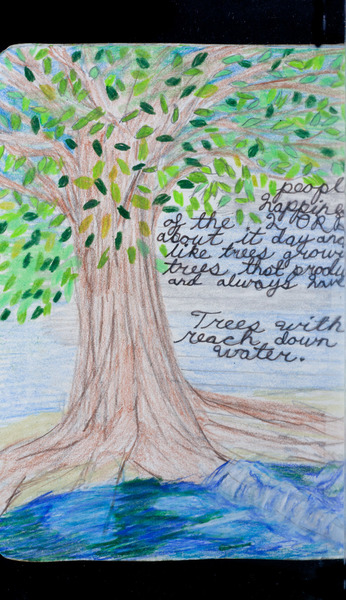 peopl
happine
of the LORD
about it day and
like trees growi
trees that produ
and always have
Trees with
reach down
water.